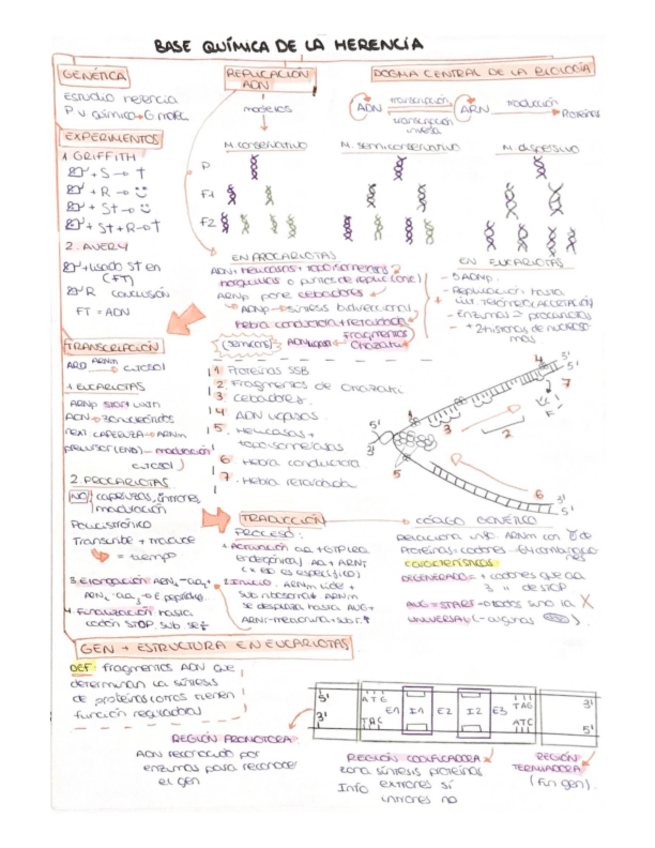 BASE QUÍMICA DE LA HERENCIA
GENÉTICA
Estudio herencia
EXPERIMENTOS
1. GRIFFITH
+ S →
+ R →
+ St →
+ St + R →
2. AVERY
+ lisado St en
(FT)
R conclusión
FT = ADN
REPLICACIÓN
ADN
modelos
M. conservativo
M. semiconservativo
M. dispersivo
P
F1
F2
DOGMA CENTRAL DE LA BIOLOGÍA
ADN transcripción ARN traducción Proteínas
transcripción
inversa
EN PROCARIOTAS
ADN + helicasas + topoisomerasas
horquillas o puntos de replic (oric)
ARNp pone cebadores
ADNp → síntesis bidireccional
hebra conductora + retardada
ADN ligasa fragmentos
Okazaki
EN EUCARIOTAS
- 5 ADNp.
- Replicación hasta
- Enzimas = procariotas
- + 2 histonas de nucleoso
mas.
1. Proteínas SSB
2. Fragmentos de Okazaki
3. Cebadores.
4. ADN ligasas.
5. Helicasas +
topoisomerasas
6. Hebra conductora
7. Hebra retardada
5'
3'
1
3
4
5
2
6
7
3'
5'
3'
5'
TRANSCRIPCIÓN
ARNm citosol
1. EUCARIOTAS
ARNp start
next CAPERUZA → ARNm
precursor (END) → maduración
citosol
2. PROCARIOTAS
NO caperuzas, intrones,
maduración
Policistrónico
Transcribe + traduce
= tiempo
TRADUCCIÓN
PROCESO:
1. Activación aa + GTP (rea
endergónica) aa + ARNt
(x eso es específico)
2. Inicio. ARNm lider +
sub ribosomal. ARNm
se desplaza hasta AUG +
ARNt-metionina + sub r.
3. Elongación
4. Finalización hasta
codón STOP. sub. se
CÓDIGO GENÉTICO
Relaciona info. ARNm con
Proteínas → codones → 64 combinacio
nes
CARACTERÍSTICAS
DEGENERADO = + codones que aa
3 de STOP
AUG = START → todos sino la X
UNIVERSAL (- algunas ).
GEN + ESTRUCTURA EN EUCARIOTAS
DEF: fragmentos ADN que
determinan la síntesis
de proteínas (otros tienen
función reguladora)
5'
3'
ATG
TAC
E1
I1
E2
I2
E3
TAG
ATC
3'
5'
REGIÓN PROMOTORA
ADN reconocido por
enzimas para reconocer
el gen
REGIÓN CODIFICADORA
zona síntesis proteínas
Info extrones sí
intrones no
REGIÓN
TERMINADORA
(fin gen).